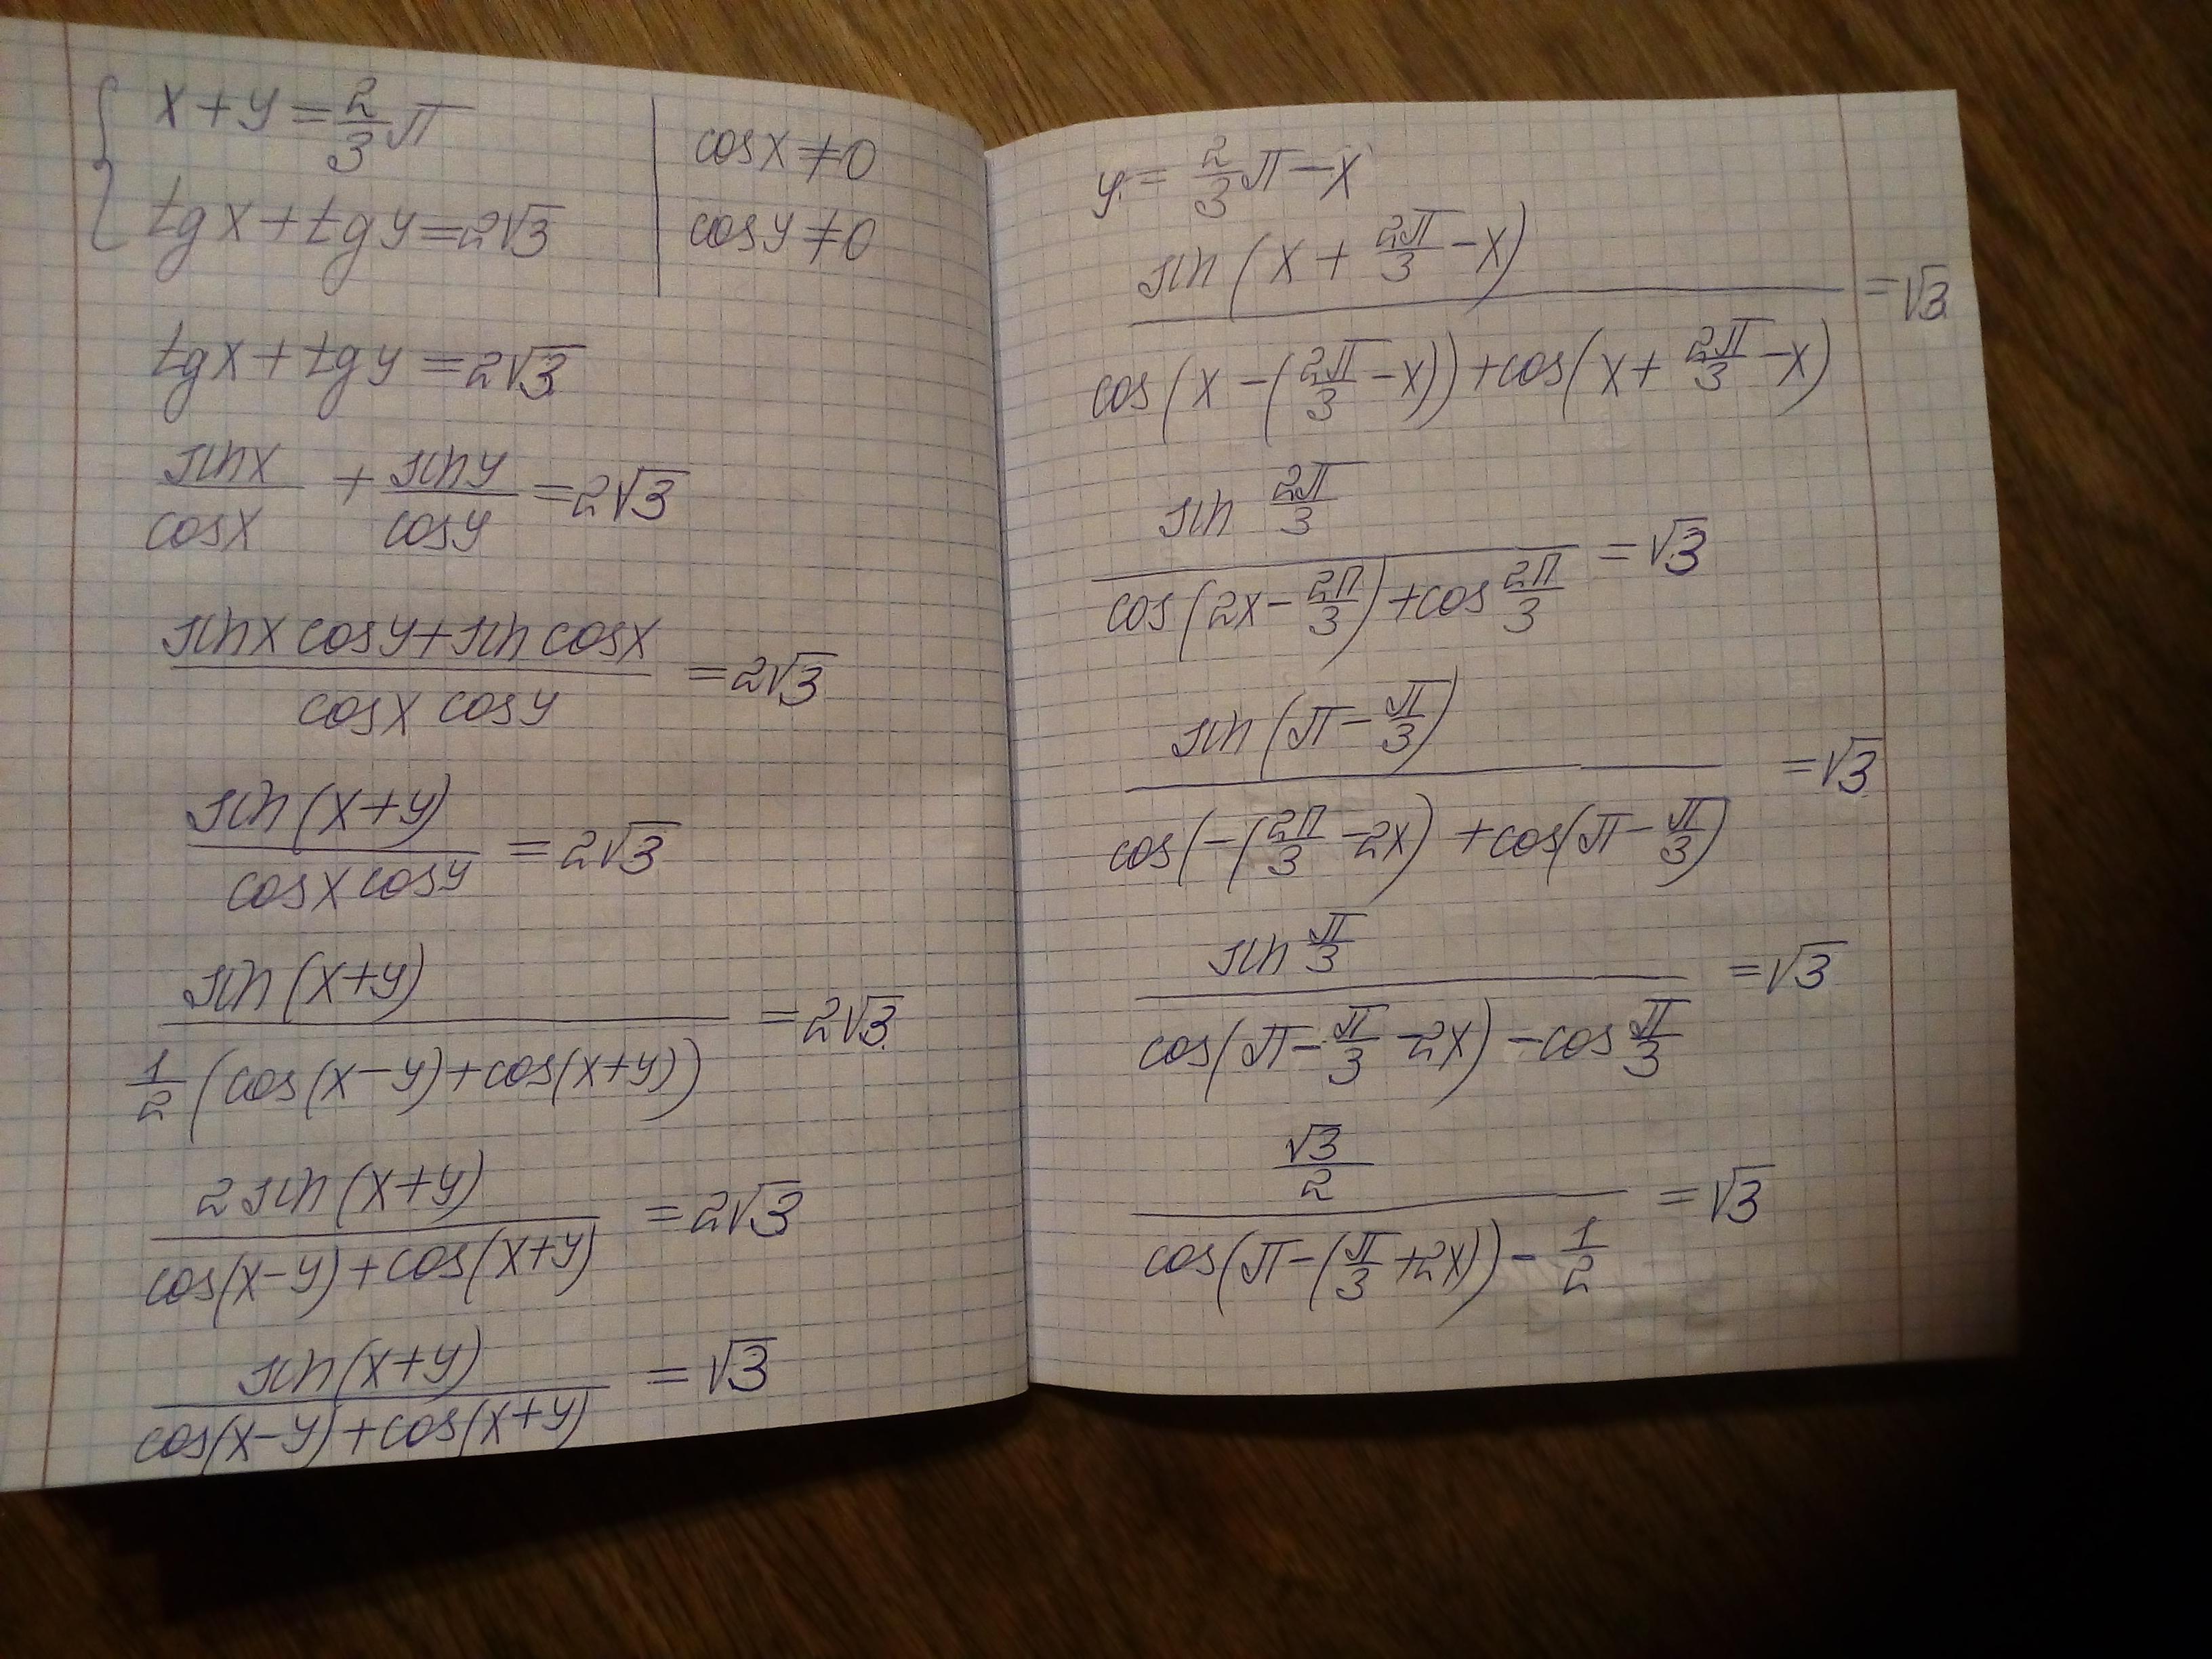 x + y = 2/3 π | cos x ≠ 0
tg x + tg y = 2√3 | cos y ≠ 0
tg x + tg y = 2√3
sin x / cos x + sin y / cos y = 2√3
(sin x cos y + sin cos x) / (cos x cos y) = 2√3
sin(x+y) / (cos x cos y) = 2√3
sin(x+y) / (1/2 (cos(x−y) + cos(x+y))) = 2√3
2 sin(x+y) / (cos(x−y) + cos(x+y)) = 2√3
sin(x+y) / (cos(x−y) + cos(x+y)) = √3
y = 2/3 π − x
sin(x + 2π/3 − x) / (cos(x − (2π/3 − x)) + cos(x + 2π/3 − x)) = √3
sin 2π/3 / (cos(2x − 2π/3) + cos 2π/3) = √3
sin(π − π/3) / (cos(−(2π/3 − 2x) + cos(π − π/3)) = √3
sin π/3 / (cos(π − π/3 − 2x) − cos π/3) = √3
√3/2 / (cos(π − (π/3 + 2x)) − 1/2) = √3